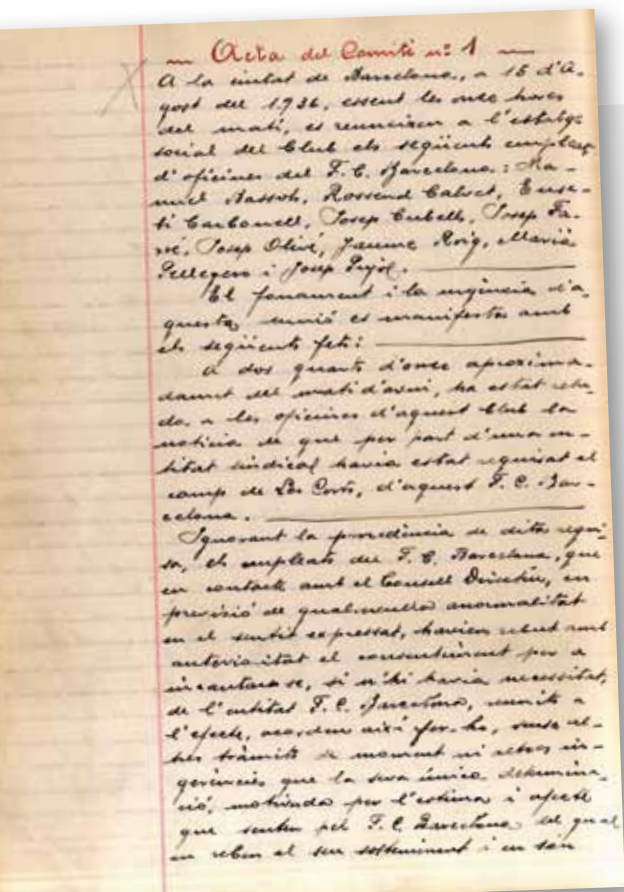 Acta del Comitè nº 1
A la ciutat de Barcelona, a 15 d'A-
gost del 1936, essent les onze hores
del matí, es reuneixen a l'estatge
social del Club els següents empleats
d'oficines del F.C. Barcelona: Ma-
nuel Bassols, Rossend Calvet, Euse-
bi Carbonell, Josep Cubells, Josep Fa-
rré, Josep Olivé, Jaume Roig, Marià
Pellegero i Josep Pujol.
El fonament i la urgència d'a-
questa reunió es manifesta amb
els següents fets:
A dos quarts d'onze aproxima-
dament del matí d'avui, ha estat rebu-
da a les oficines d'aquest Club la
notícia de que per part d'una en-
titat sindical havia estat requisat el
camp de Les Corts, d'aquest F.C. Bar-
celona.
Ignorant la procedència de dita requi-
sa, els empleats del F.C. Barcelona, que
en contacte amb el Consell Directiu, en
previsió de qualssevulla anormalitat
en el sentit expressat, havien rebut amb
anterioritat el consentiment per a
incautar-se, si n'hi havia necessitat,
de l'entitat F.C. Barcelona, reunits a
l'efecte, acorden així fer-ho, sense al-
tres tràmits de moment ni altres in-
gerències que la seva única determina-
ció, motivada per l'estima i afecte
que senten pel F.C. Barcelona del qual
en reben el seu sosteniment i en són